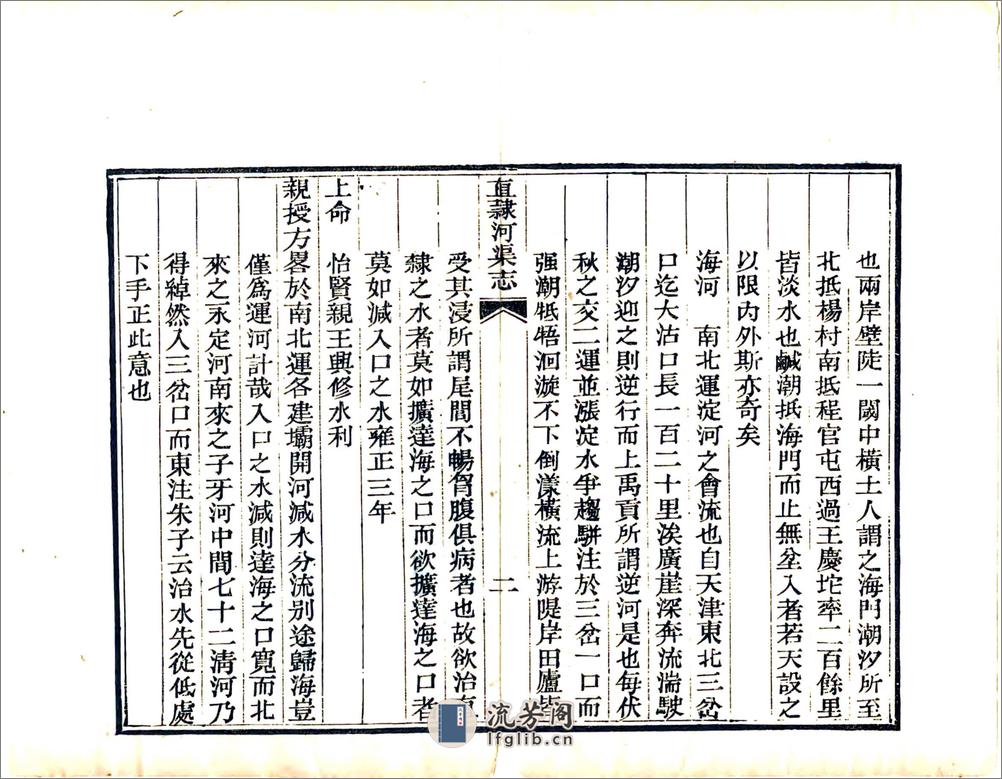 也兩岸壁陡一閾中橫土人謂之海門潮汐所至
北抵楊村南抵程官屯西過王慶坨率二百餘里
皆淡水也鹹潮抵海門而止無坌入者若天設之
以限內外斯亦奇矣
海河　南北運淀河之會流也自天津東北三岔
口迄大沽口長一百二十里涘廣崖深奔流湍駛
潮汐迎之則逆行而上禹貢所謂逆河是也每伏
秋之交二運並漲淀水爭趨駢注於三岔一口而
强潮牴牾洄漩不下倒漾橫流上游隄岸田廬皆
直隸河渠志
二
受其浸所謂尾閭不暢胷腹俱病者也故欲治直
隸之水者莫如擴達海之口而欲擴達海之口者
莫如減入口之水雍正三年
上命　怡賢親王興修水利
親授方畧於南北運各建壩開河減水分流別途歸海豈
僅爲運河計哉入口之水減則達海之口寬而北
來之永定河南來之子牙河中間七十二清河乃
得綽然入三岔口而東注朱子云治水先從低處
下手正此意也
流芳阁
lfglib.cn